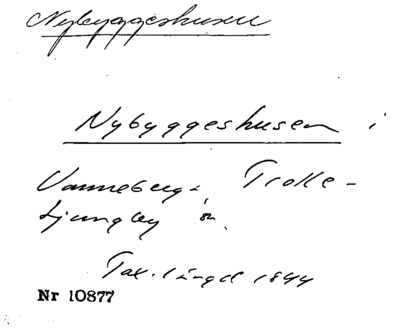 Nybyggeshusen
Nybyggeshusen i
Vanneberga, Trolle-
Ljungby sn.
Tax. längd 1844
Nr 10877